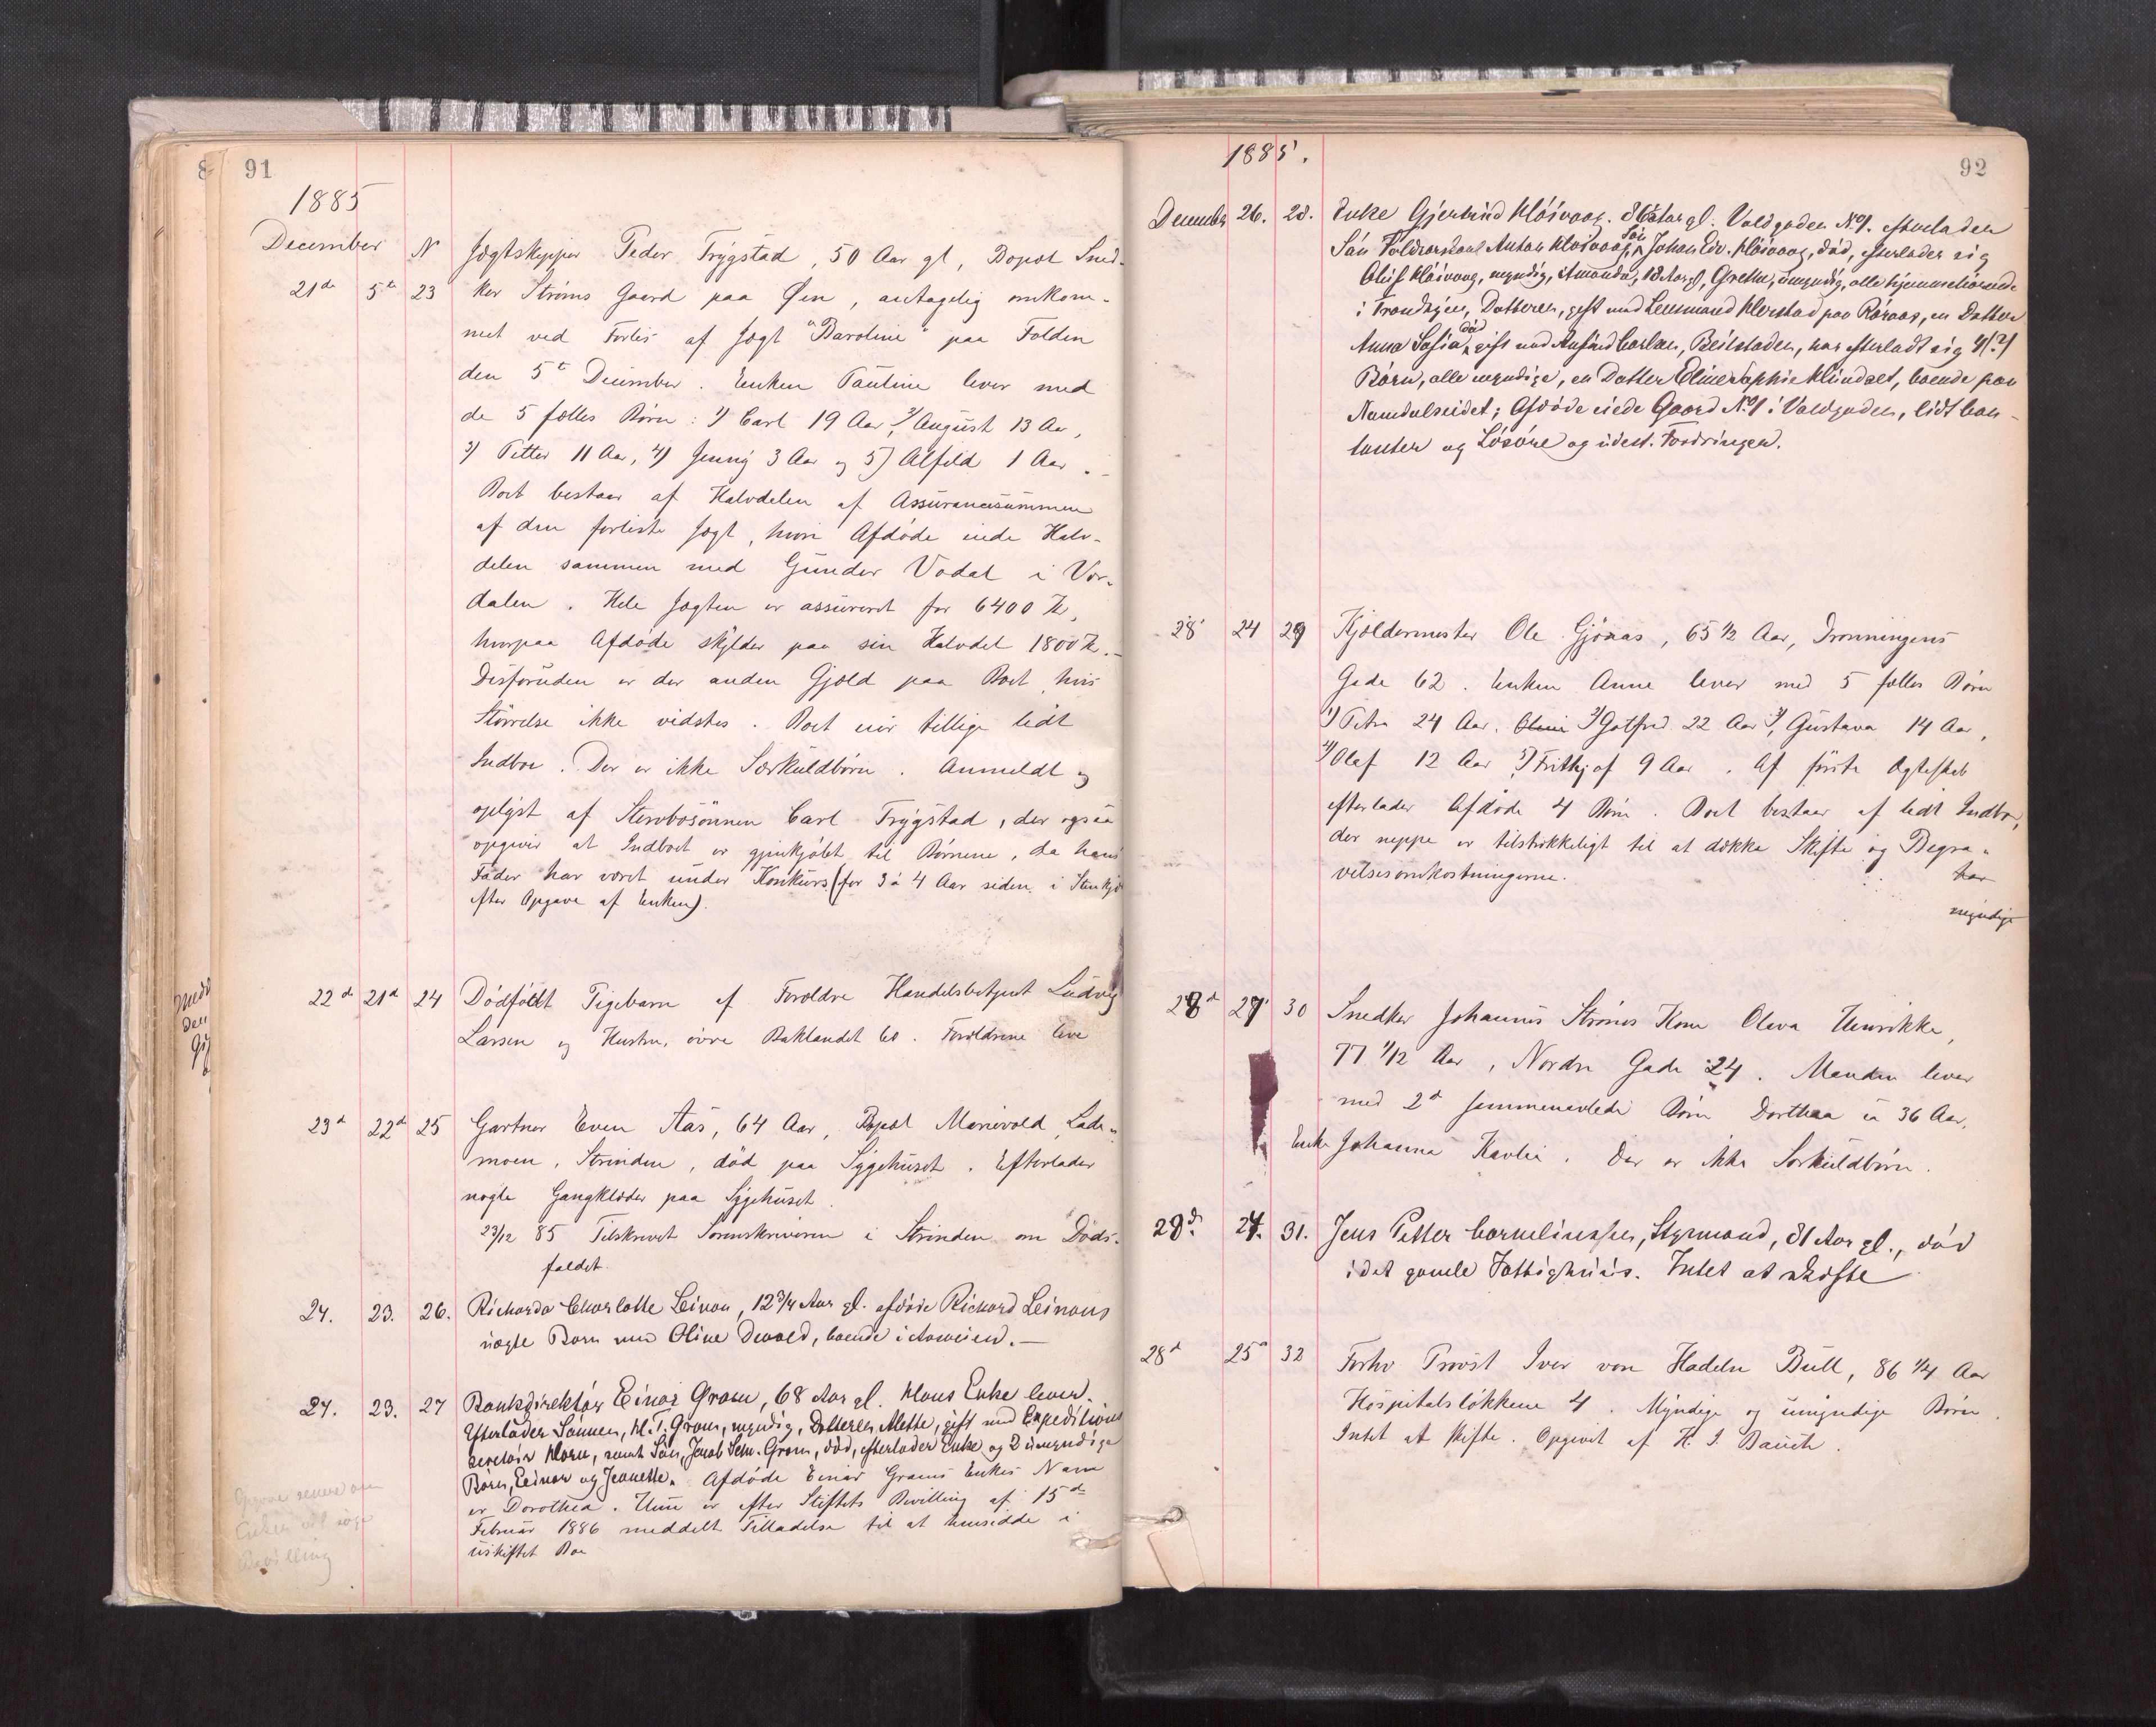 91
1885
December N Jægtskipper Peder Trygstad, 50 Aar gl, Bopæl Sned-
21de 5te 23 ker Strøms Gaard paa Øen, antagelig omkom-
met ved Forlis af Jægt "Baroline" paa Folden
den 5te December. Enken Pauline lever med
de 5 fælles Børn: 1) Carl 19 Aar, 2) August 13 Aar,
3) Petter 11 Aar, 4) Jenny 3 Aar og 5) Alfild 1 Aar.
Boet bestaar af Halvdelen af Assurancesummen
af den forliste Jægt, hvori Afdøde eiede Halv-
delen sammen med Gunder Vodal i Vær-
dalen. Hele Jægten er assureret for 6400 Kr,
hvorpaa Afdøde skylder paa sin Halvdel 1800 Kr.-
Desforuden er der anden Gjæld paa Boet, hvis
Størrelse ikke vidstes. Boet eier tillige lidt
Indbo. Der er ikke Særkuldbørn. Anmeldt og
oplyst af Stervbosønnen Carl Trygstad, der ogsaa
opgiver at Indboet er gjenkjøbt til Børnene, da hans
Fader har været under Konkurs (for 3 à 4 Aar siden i Stenkjær
efter Opgave af Enken).
22d 21d 24 Dødfødt Pigebarn af Forældre Handelsbetjent Ludvig
Larsen og Hustru, øvre Baklandet 60. Forældrene leve
23d 22d 25 Gartner Even Aas, 64 Aar, Bopæl Marievold, Lade-
moen, Strinden, død paa Sygehuset. Efterlader
nogle Gangklæder paa Sygehuset.
23/12 85 Tilskrevet Sorenskriveren i Strinden om Døds-
faldet.
24. 23. 26. Richarda Charlotte Leinan, 12 3/4 Aar gl. afdøde Richard Leinans
uægte Barn med Oline Devold, boende i
24. 23. 27 Bankdirektør Einar Gram, 68 Aar gl. Hans Enke lever.
Efterlader Sønnen, H. T. Gram, myndig, Datteren Mette, gift med Expeditions
secretær Horn, samt Søn, Jacob Sem. Gram, død, efterlader Enke og 2 umyndige
Børn, Einar og Jeanette. Afdøde Einar Grams Enkes Navn
er Dorothea. Hun er efter Stiftets Bevilling af 15de
Februar 1886 meddelt Tilladelse til at hensidde i
uskiftet Bo
Opgave senere om
Enken vil søge
Bevilling
1885.
92
December 26. 28. Enke Gjertrud Kløivaag. 86 Aar gl. Voldgaden No 1. efterlader
Søn Anton Kløvaag, Søn Johan Edv. Kløivaag, død, efterlader sig
Oluf Kløivaag, myndig, Amanda, 18 Aar gl, Grethe, umyndig, alle hjemmehørende
i Trondhjem, Datteren, gift med Lensmand Klerstad paa Røraas, en Datter
Anna Sofia død gift med Carlsen, Beitstaden, har efterladt sig 4(?)
Børn, alle myndige, en Datter boende paa
Namdalseidet; Afdøde eiede Gaard No 1 i Voldgaden, lidt Con-
tanter og Løsøre og udest. Fordringer.
28 24 29 Kjældermester Ole Gjønas, 65 1/2 Aar, Dronningens
Gade 62. Enken Anne lever med 5 fælles Børn
1) Petra 24 Aar. 2) Gotfred 22 Aar 3) Gustava 14 Aar,
4) Olaf 12 Aar 5) Frithjof 9 Aar. Af første Ægteskab
efterlader Afdøde 4 Børn. Boet bestaar af lidt Indbo,
der neppe er tilstrækkeligt til at dække Skifte og Begra-
velsesomkostningerne.
har
myndige
28d 27 30 Snedker Johannes Strøms Kone Olava Henrikke,
77 1/12 Aar, Nordre Gade 24. Manden lever
med 2de sammenavlede Børn Dorthea ca 36 Aar,
Enke Johanna Kavlie. Der er ikke Særkuldbørn.
29d. 27. 31. Jens Petter Corneliussen, Styrmand, 81 Aar gl., død
i det gamle Fattighuus. Intet at skifte
28d 25d 32 Forhv Provst Iver von Hadeln Bull, 86 1/4 Aar
Hospitalsløkkene 4. Myndige og umyndige Børn.
Intet at skifte. Opgivet af H. J. Bauch.